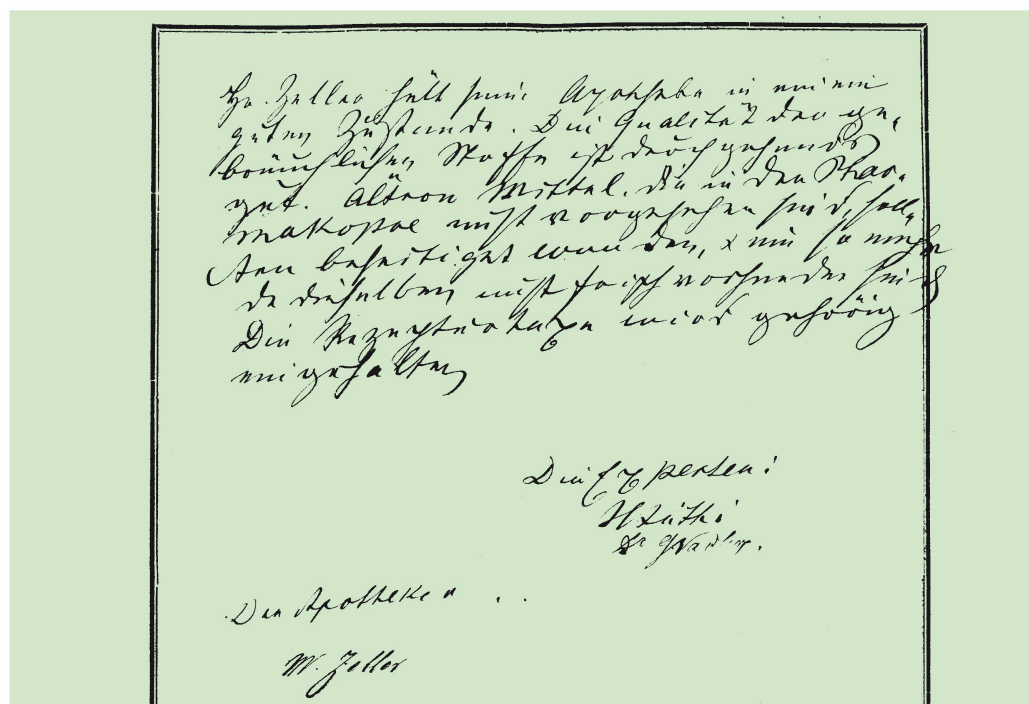 Hr. Zeller hält seine Apotheke in einem
guten Zustande. Die Qualität der ge-
bräuchlichen Stoffe ist durchgehends
gut. Ältere Mittel, die in der Phar-
makopoe nicht vorgesehen sind, soll-
ten beseitigt werden,
dieselben nicht frisch vorhanden sind
Die Rezepturtaxe wird gehörig
eingehalten
Die Experten:
Der Apotheker
W. Zeller